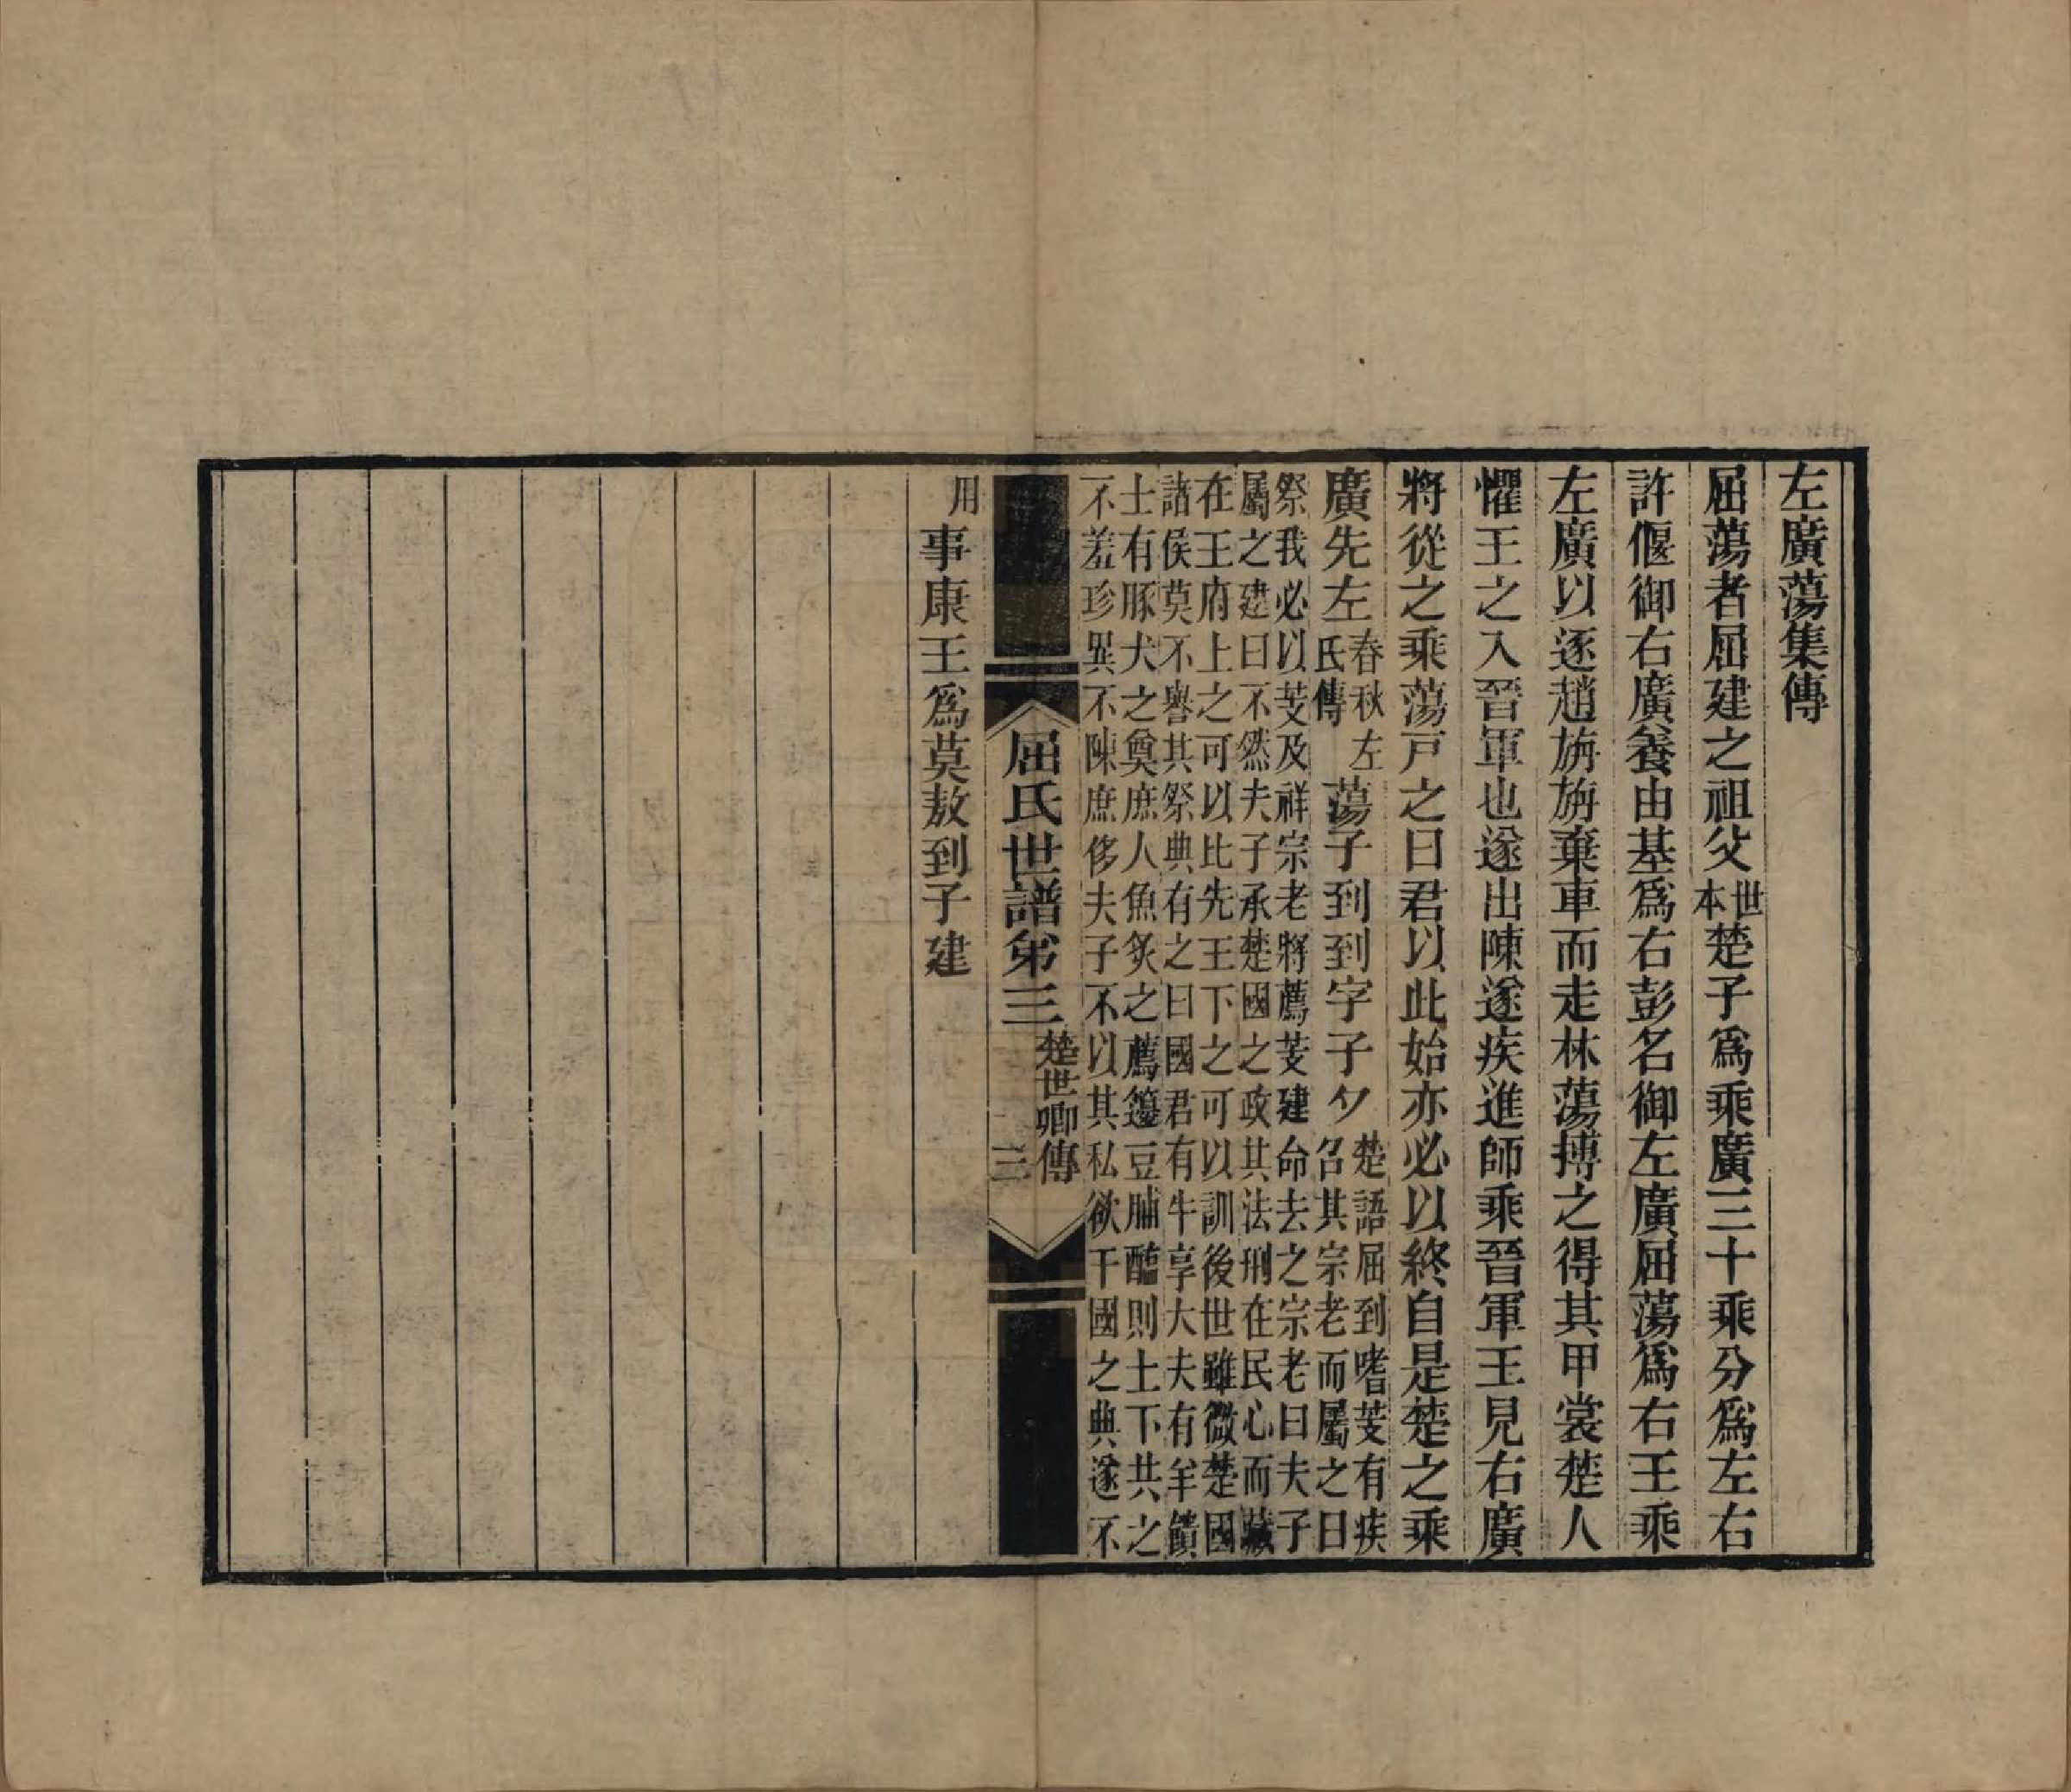 左廣蕩集傳
屈蕩者屈建之祖父世本楚子爲乘廣三十乘分爲左右
許偃御右廣養由基爲右彭名御左廣屈蕩爲右王乘
左廣以逐趙旃旃棄車而走林蕩搏之得其甲裳楚人
懼王之入晉軍也遂出陳遂疾進師乘晉軍王見右廣
將從之乘蕩戸之曰君以此始亦必以終自是楚之乘
廣先左春秋左氏傳蕩子到到字子夕楚語屈到嗜芰有疾
召其宗老而屬之曰
祭我必以芰及祥宗老將薦芰建命去之宗老曰夫子
屬之建曰不然夫子承楚國之政其法刑在民心而藏
在王府上之可以比先王下之可以訓後世雖微楚國
諸侯莫不譽其祭典有之曰國君有牛享大夫有羊饋
士有豚犬之奠庶人魚炙之薦籩豆脯醢則上下共之
不羞珍異不陳庶侈夫子不以其私欲干國之典遂不
屈氏世譜弟三 楚世卿傳 三
用事康王爲莫敖到子建